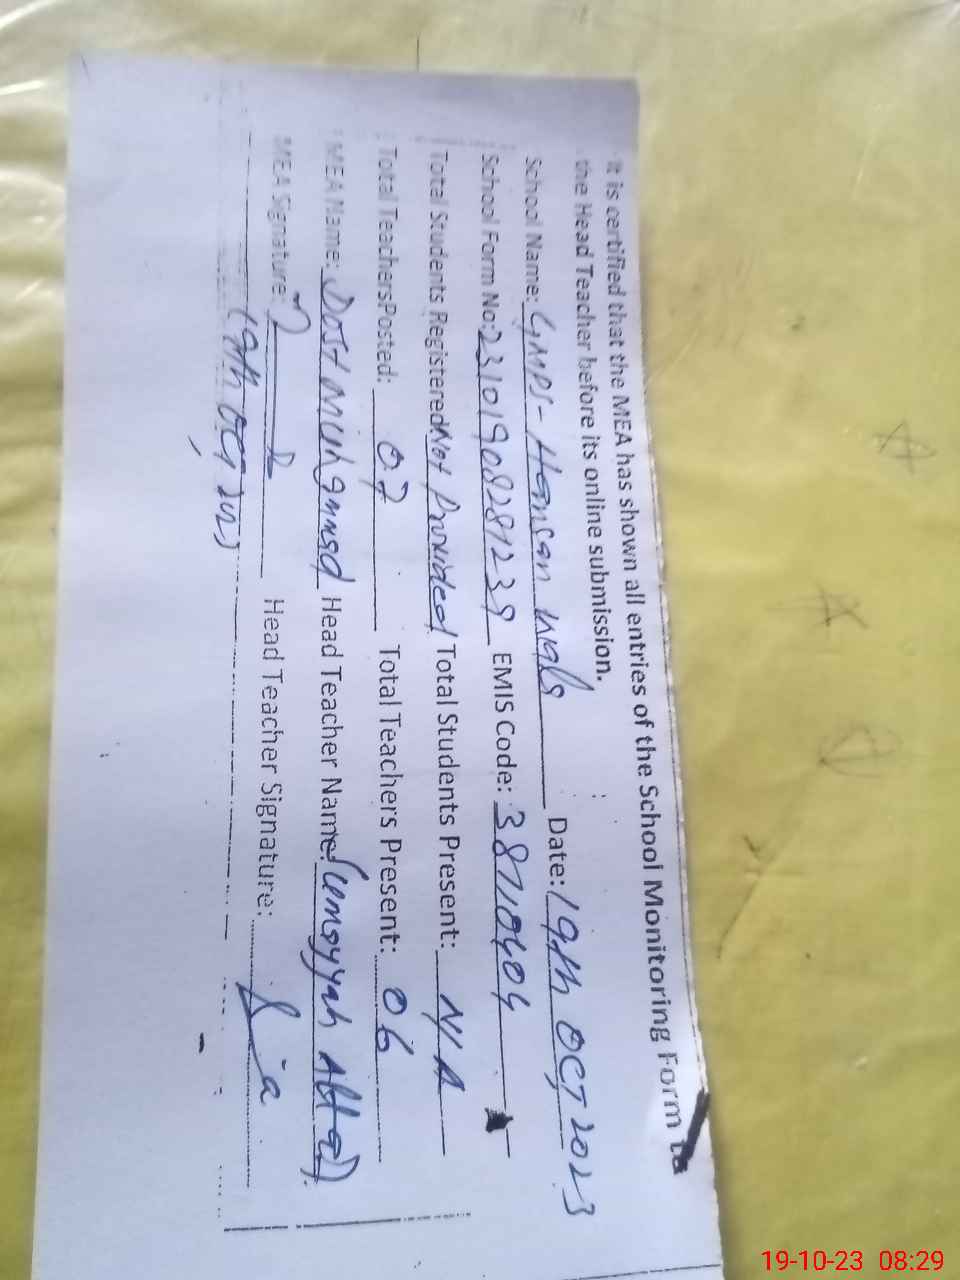 It is certified that the MEA has shown all entries of the School Monitoring Form to
the Head Teacher before its online submission.
School Name: GMPS - Hassan Wala Date: 19th OCT 2023
School Form No: EMIS Code:
Total Students Registered Not Provided Total Students Present: N/A
Total Teachers Posted: 07 Total Teachers Present: 06
MEA Name: Dost Muhammad Head Teacher Name:
MEA Signature: Head Teacher Signature:
19th OCT 2023
19-10-23 08:29